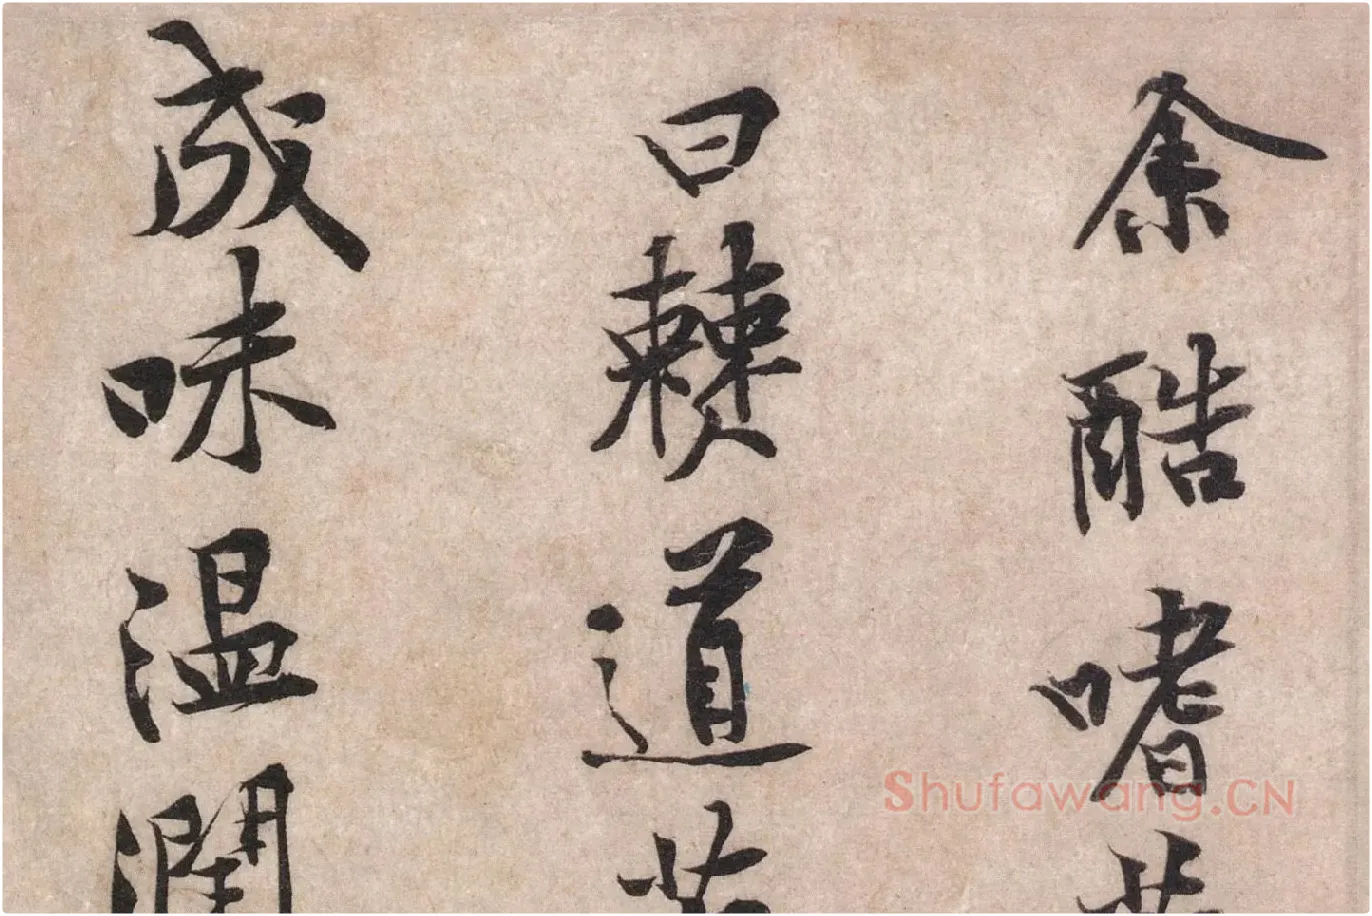 余酷嗜
曰僰道
成味温潤
Shufawang.CN